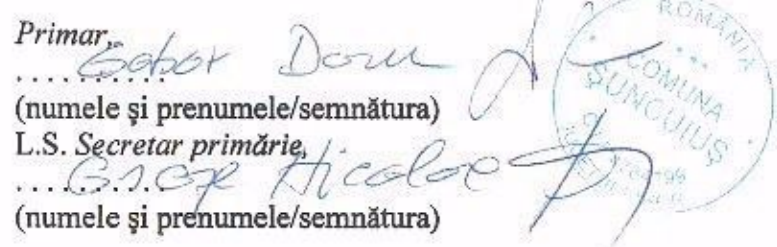 Primar,
Gabor Doru
..........
(numele și prenumele/semnătura)
L.S. Secretar primărie,
Nicolae
..........
(numele și prenumele/semnătura)
ROMÂNIA
COMUNA
ȘUNCUIUȘ